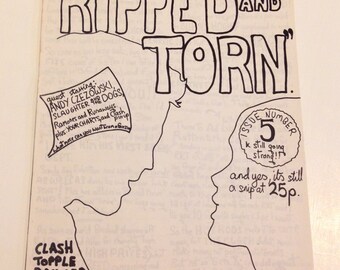 RIPPED AND
TORN".
guest starring:
ANDY CZEZOWSKI
SLAUGHTER and the DOGS,
Ramones and Runaways
plus YOUR CHARTS, and Clash
ISSUE NUMBER
5
& still going
strong!!
and yes, it's still
a snip at 25p.
CLASH
TOPPLE